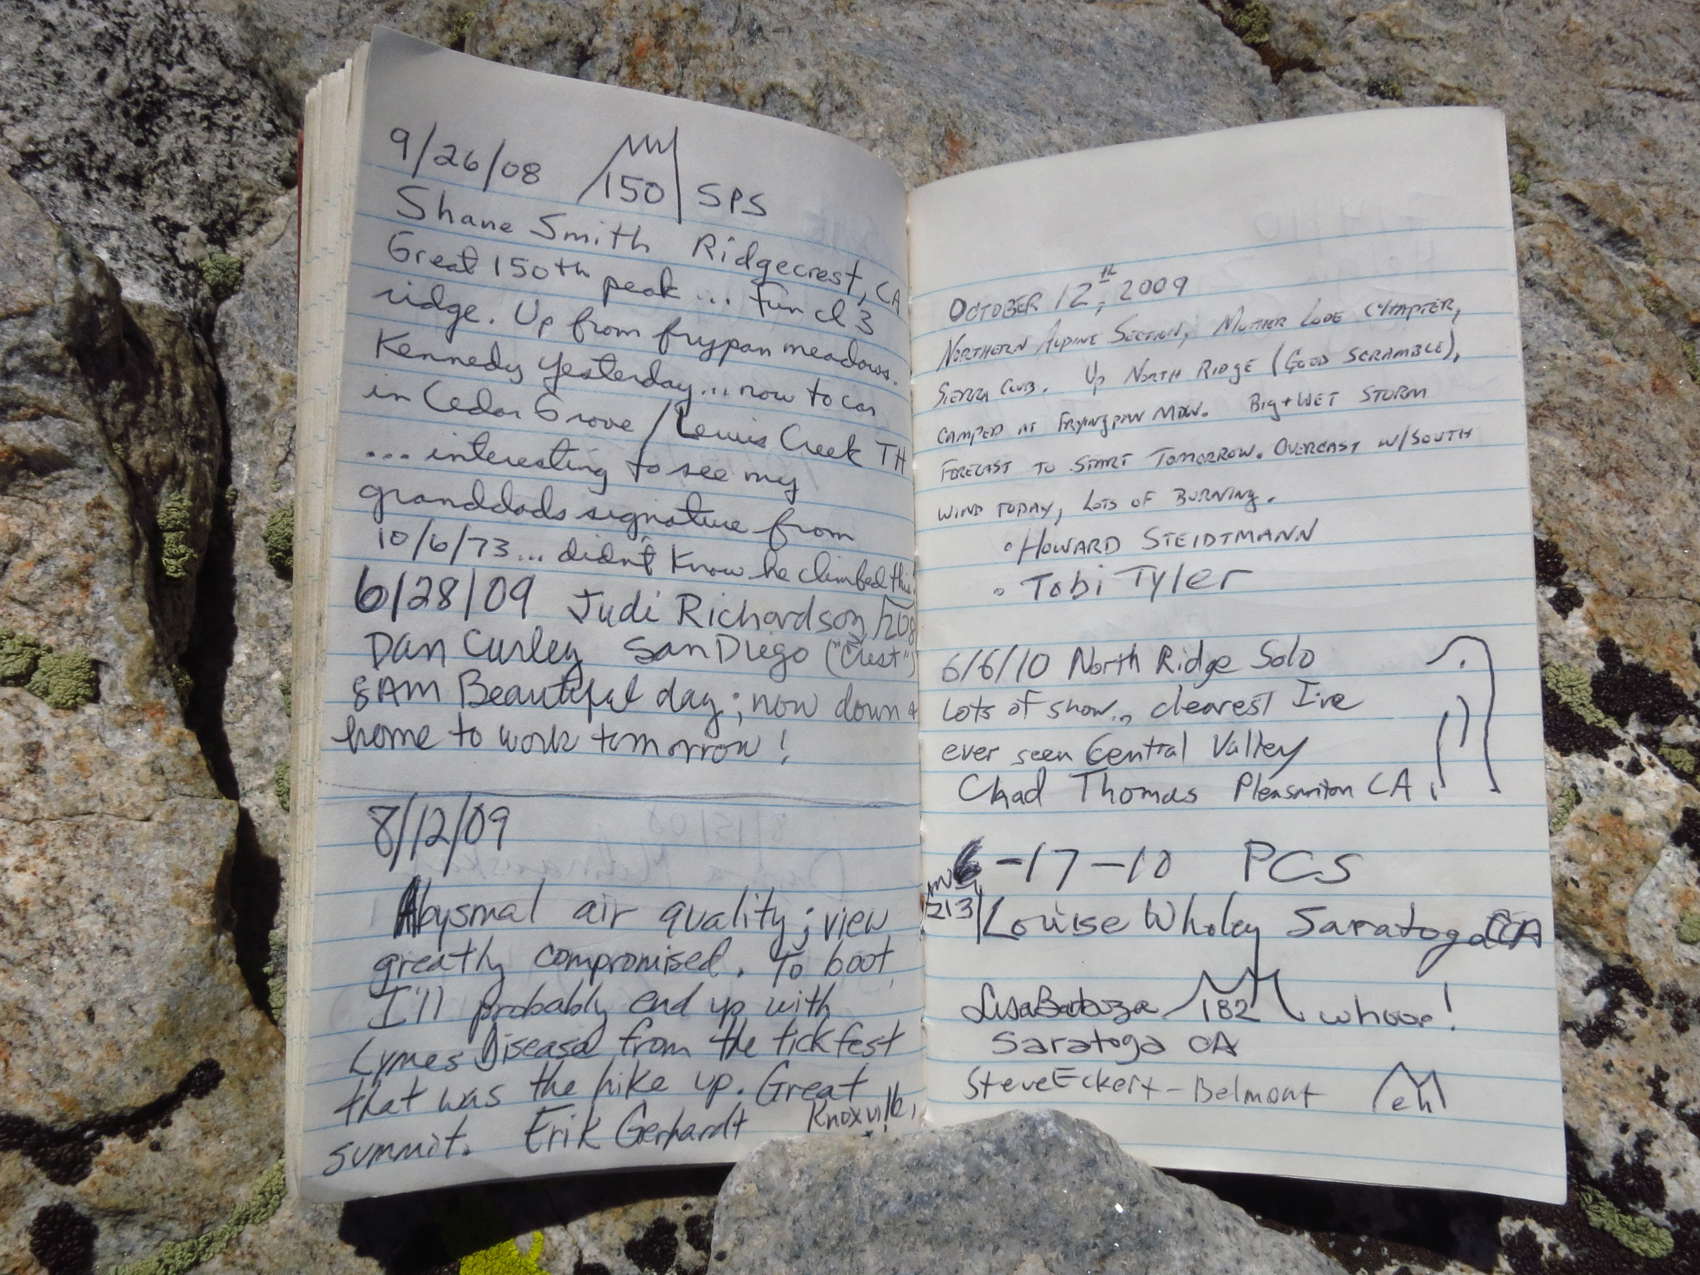 9/26/08 150 SPS
Shane Smith Ridgecrest, CA
Great 150th peak... fun cl 3
ridge. Up from frypan meadows.
Kennedy yesterday... now to car
in Cedar Grove / Lewis Creek TH
... interesting to see my
granddads signature from
10/6/73... didn't know he climbed this!
6/28/09 Judi Richardson
Dan Curley San Diego ("Crest")
8AM Beautiful day; now down &
home to work tomorrow!
8/12/09
Abysmal air quality; view
greatly compromised. To boot,
I'll probably end up with
Lymes Disease from the tickfest
that was the hike up. Great
summit. Erik Gerhardt Knoxville,
OCTOBER 12th, 2009
NORTHERN ALPINE SECTION, MOTHER LODE CHAPTER,
SIERRA CLUB. UP NORTH RIDGE (GOOD SCRAMBLE),
CAMPED AT FRYINGPAN MDW. BIG + WET STORM
FORECAST TO START TOMORROW. OVERCAST W/SOUTH
WIND TODAY, LOTS OF BURNING.
° HOWARD STEIDTMANN
° Tobi Tyler
6/6/10 North Ridge Solo
Lots of snow,, clearest I've
ever seen Central Valley
Chad Thomas Pleasanton CA
6-17-10 PCS
213 Louise Wholey Saratoga CA
Lisa Barboza 182 whoop!
Saratoga CA
Steve Eckert - Belmont eh